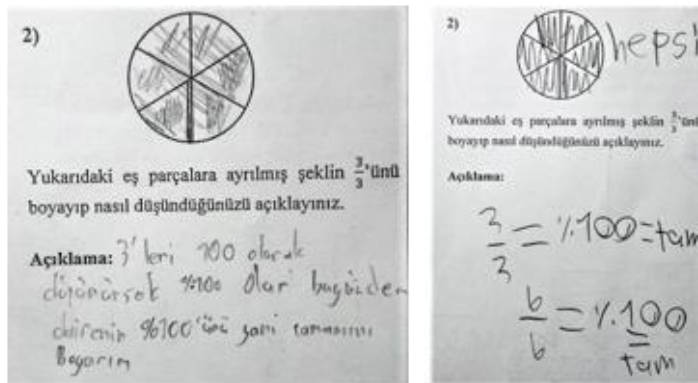 2)
Yukarıdaki eş parçalara ayrılmış şeklin 3/3'ünü
boyayıp nasıl düşündüğünüzü açıklayınız.
Açıklama: 3'leri 100 olarak
düşünürsek %100 olur bu yüzden
dairenin %100'ünü yani tamamını
Boyarım
2)
hepsi
Yukarıdaki eş parçalara ayrılmış şeklin 3/3'ünü
boyayıp nasıl düşündüğünüzü açıklayınız.
Açıklama:
3/3 = %100 = tam
6/6 = %100
=
tam